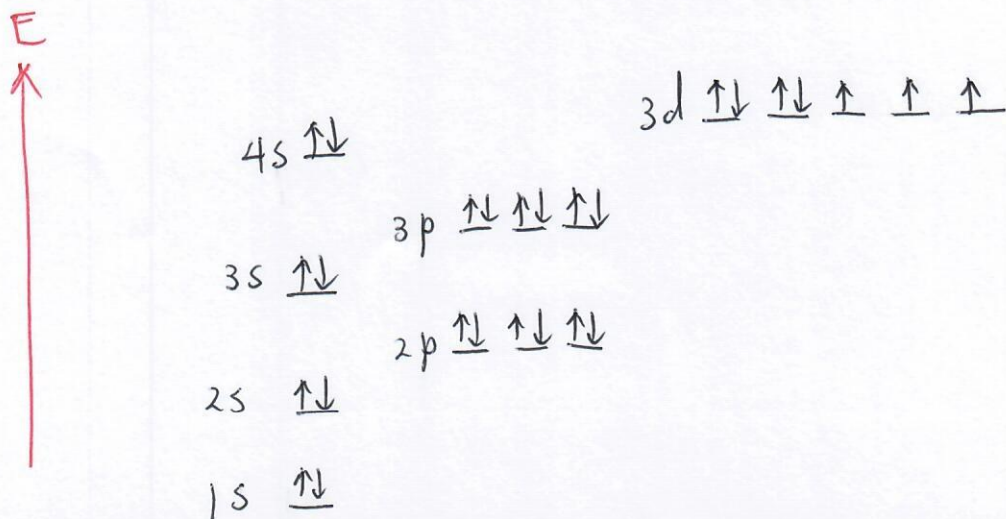 E
3d ↑↓ ↑↓ ↑ ↑ ↑
4s ↑↓
3p ↑↓ ↑↓ ↑↓
3s ↑↓
2p ↑↓ ↑↓ ↑↓
2s ↑↓
1s ↑↓